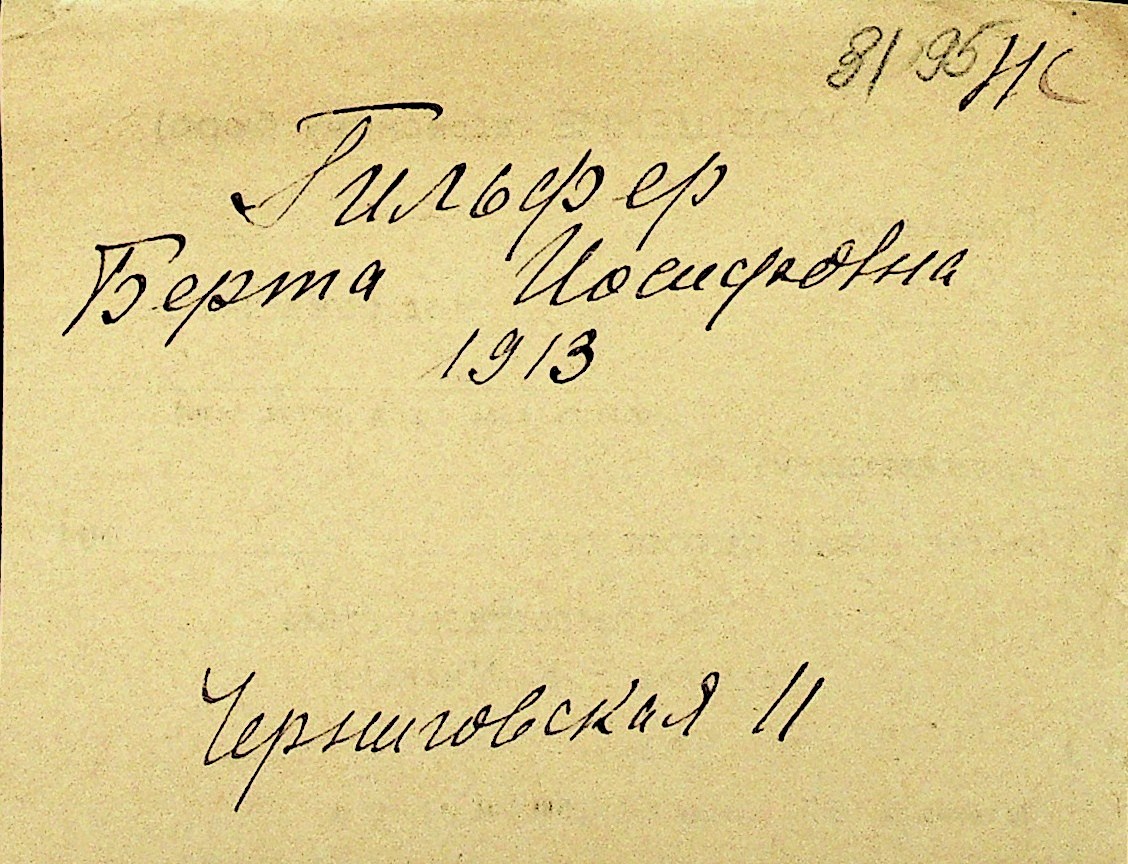 81 95 НС
Гильфер
Берта Иосифовна
1913
Черниговская 11